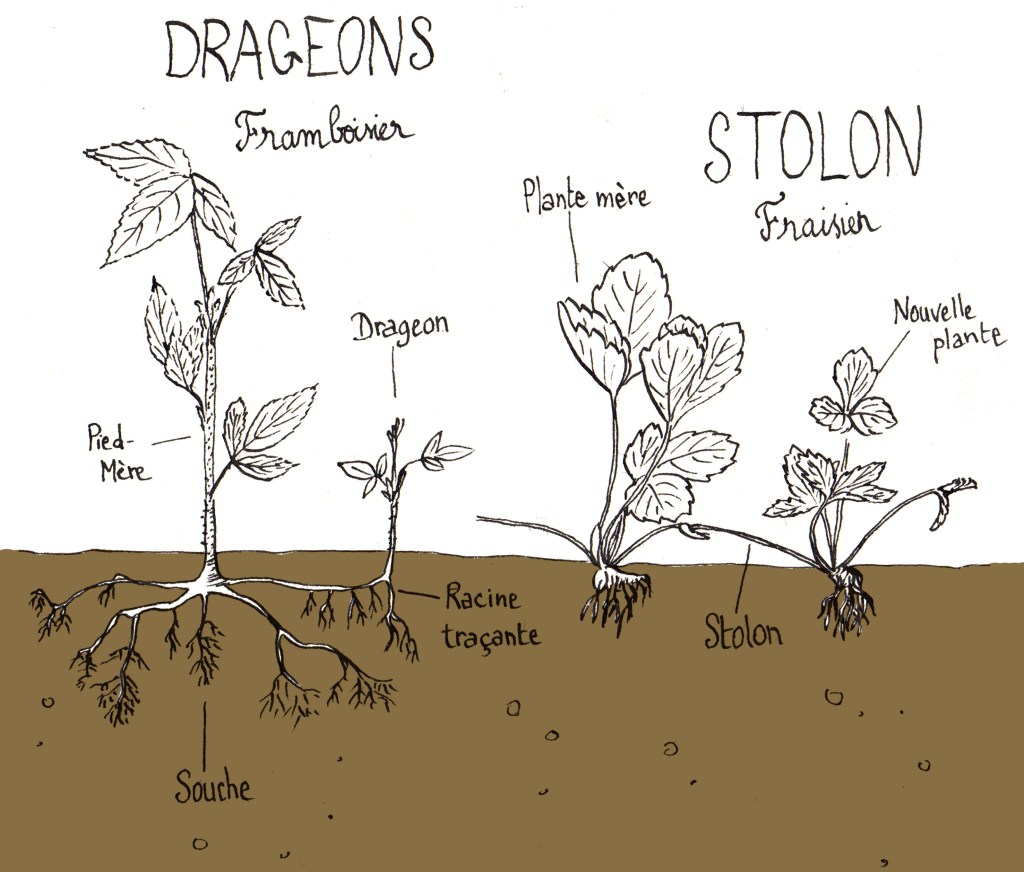 DRAGEONS
Framboisier
Pied-
Mère
Drageon
Racine
traçante
Souche
STOLON
Fraisier
Plante mère
Nouvelle
plante
Stolon